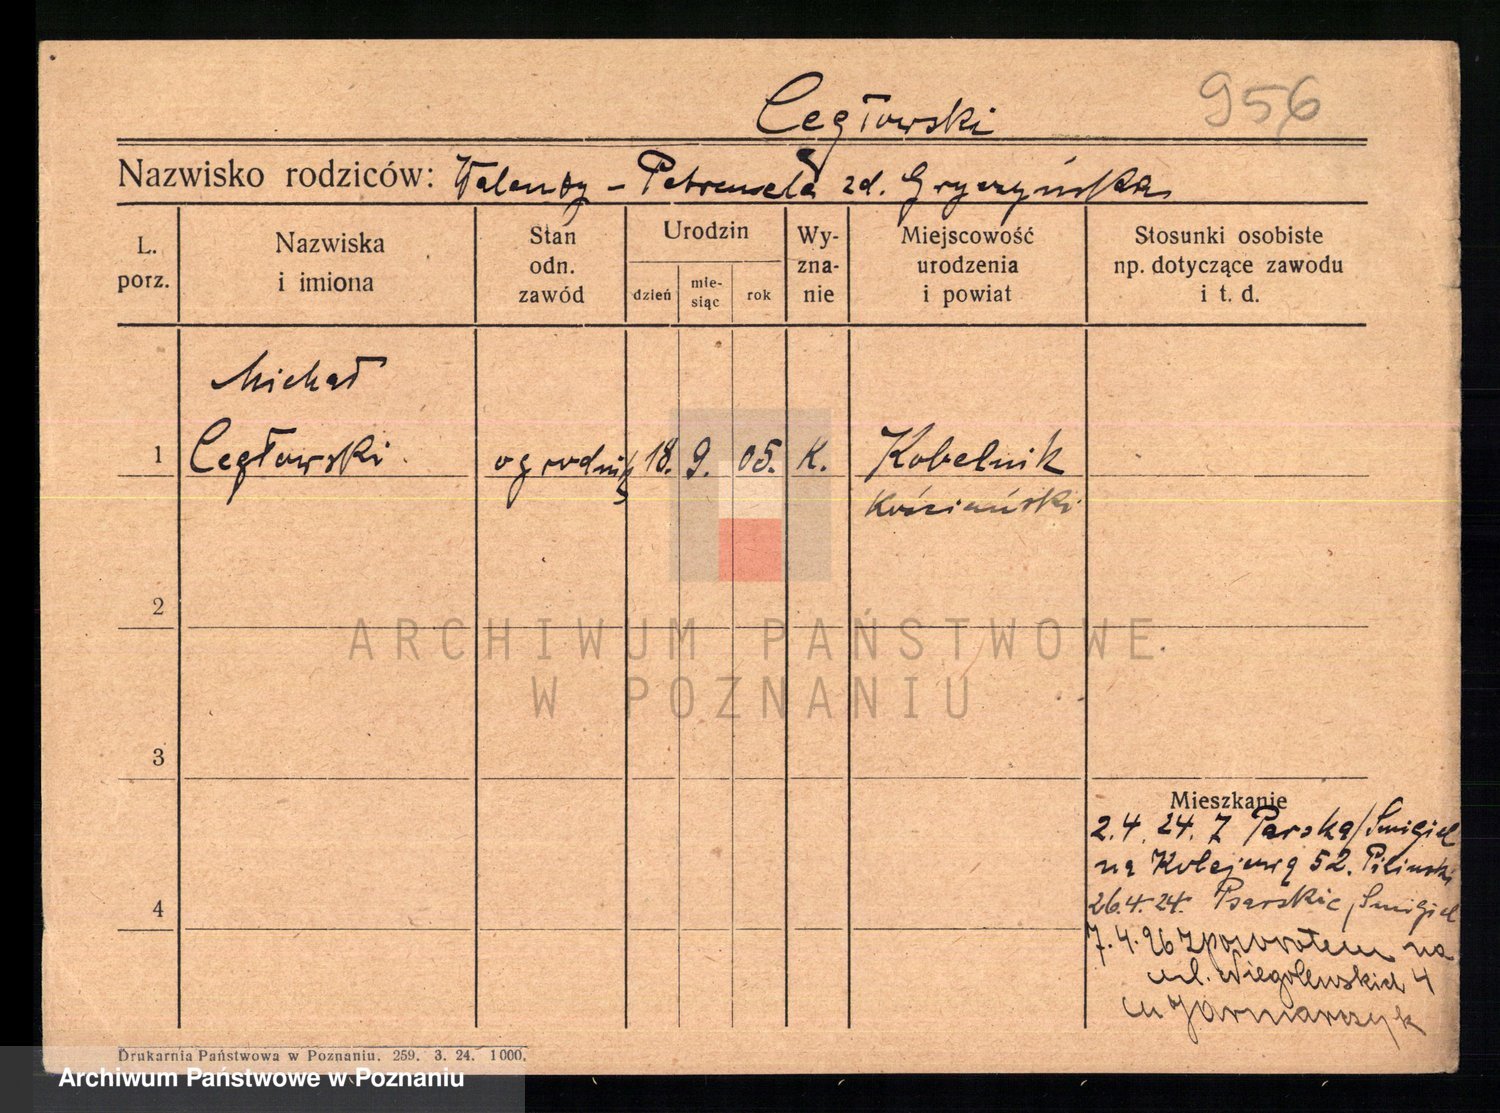 Cegłowski
956
Nazwisko rodziców: Walenty - Petronela zd. Gryczyńska
L. porz.
Nazwiska i imiona
Stan odn. zawód
Urodzin
dzień
mie- siąc
rok
Wy- zna- nie
Miejscowość urodzenia i powiat
Stosunki osobiste np. dotyczące zawodu i t. d.
Michał
1 Cegłowski ogrodnik 18. 9. 05. K. Kobelnik
Kościański
2
3
4
Mieszkanie
2.4. 24. Z Parska/Smigiel
na Kolejową 52. Piliński
26.4.24. Psarskie, Smigiel
7.4.26 zpowrotem na
ul. Niegolewskich 4
u Jarmarczyk
ARCHIWUM PAŃSTWOWE
W POZNANIU
Drukarnia Państwowa w Poznaniu. 259. 3. 24. 1000.
Archiwum Państwowe w Poznaniu